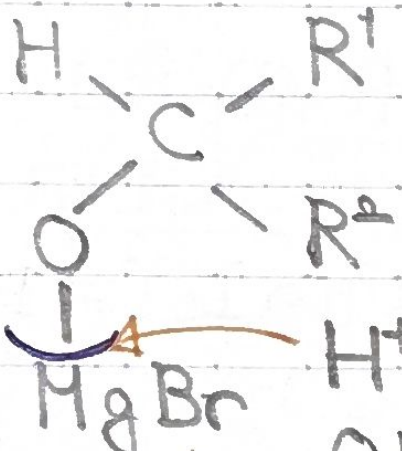 H R¹
C
O R²
H⁺
MgBr